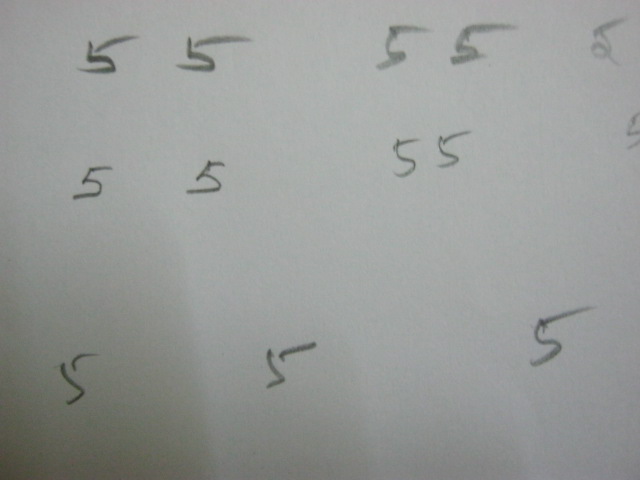 5 5 5 5 5
5 5 5 5 5
5 5 5